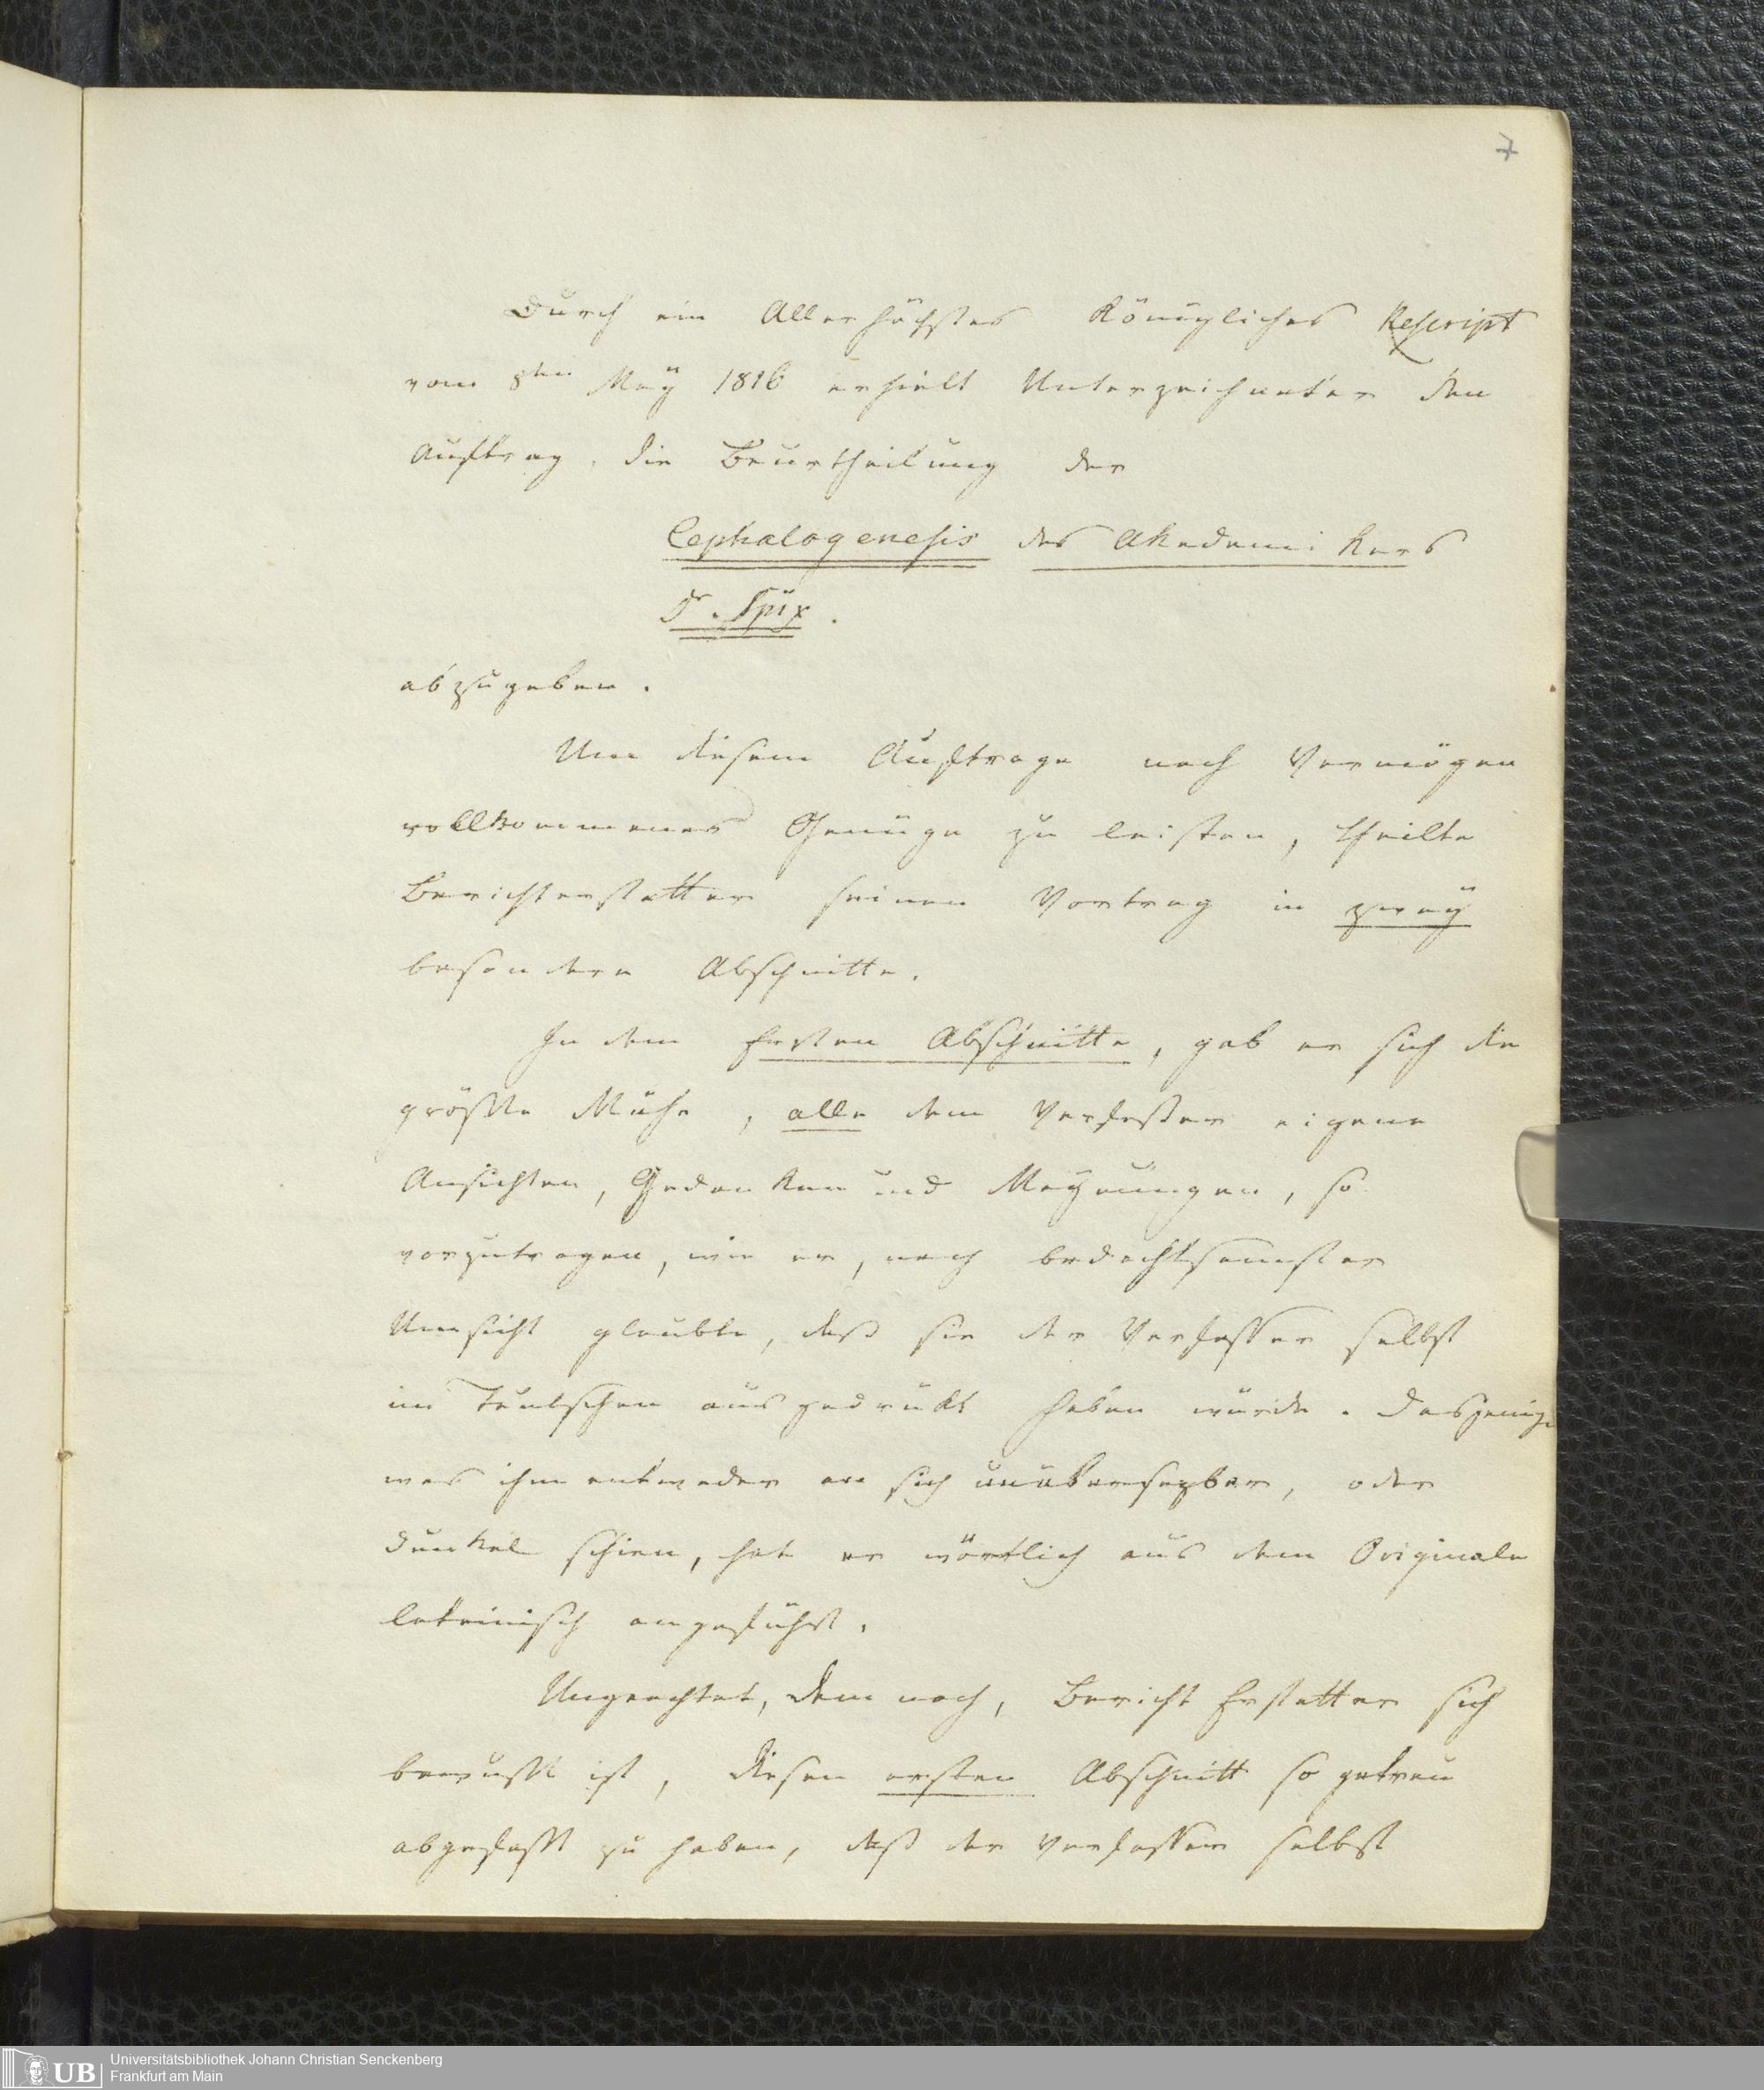 7
Durch ein Allerhöchstes Königliches Rescript
vom 8ten May 1816 erhielt Unterzeichneter den
Auftrag, die Beurtheilung der
Cephalogenesis des Akademikers
Dr. Spix.
abzugeben.
Um diesem Auftrage nach Vermögen
vollkommenes Genüge zu leisten, theilte
Berichterstatter seinen Vortrag in zwey
besondere Abschnitte.
In dem Ersten Abschnitte, gab er sich die
größte Mühe, alle dem Verfasser eigene
Ansichten, Gedanken und Meynungen, so
vorzutragen, wie er, nach bedachtsamster
Umsicht glaubte, daß sie der Verfasser selbst
im Teutschen ausgedrückt haben würde. Dasjenige
was ihm entweder an sich unübersezbar, oder
dunkel schien, hat er wörtlich aus dem Originale
lateinisch angeführt.
Ungeachtet, dem nach, Bericht Erstatter sich
bewußt ist, diesen ersten Abschnitt so getreu
abgefaßt zu haben, daß der Verfasser selbst
UB
Universitätsbibliothek Johann Christian Senckenberg
Frankfurt am Main